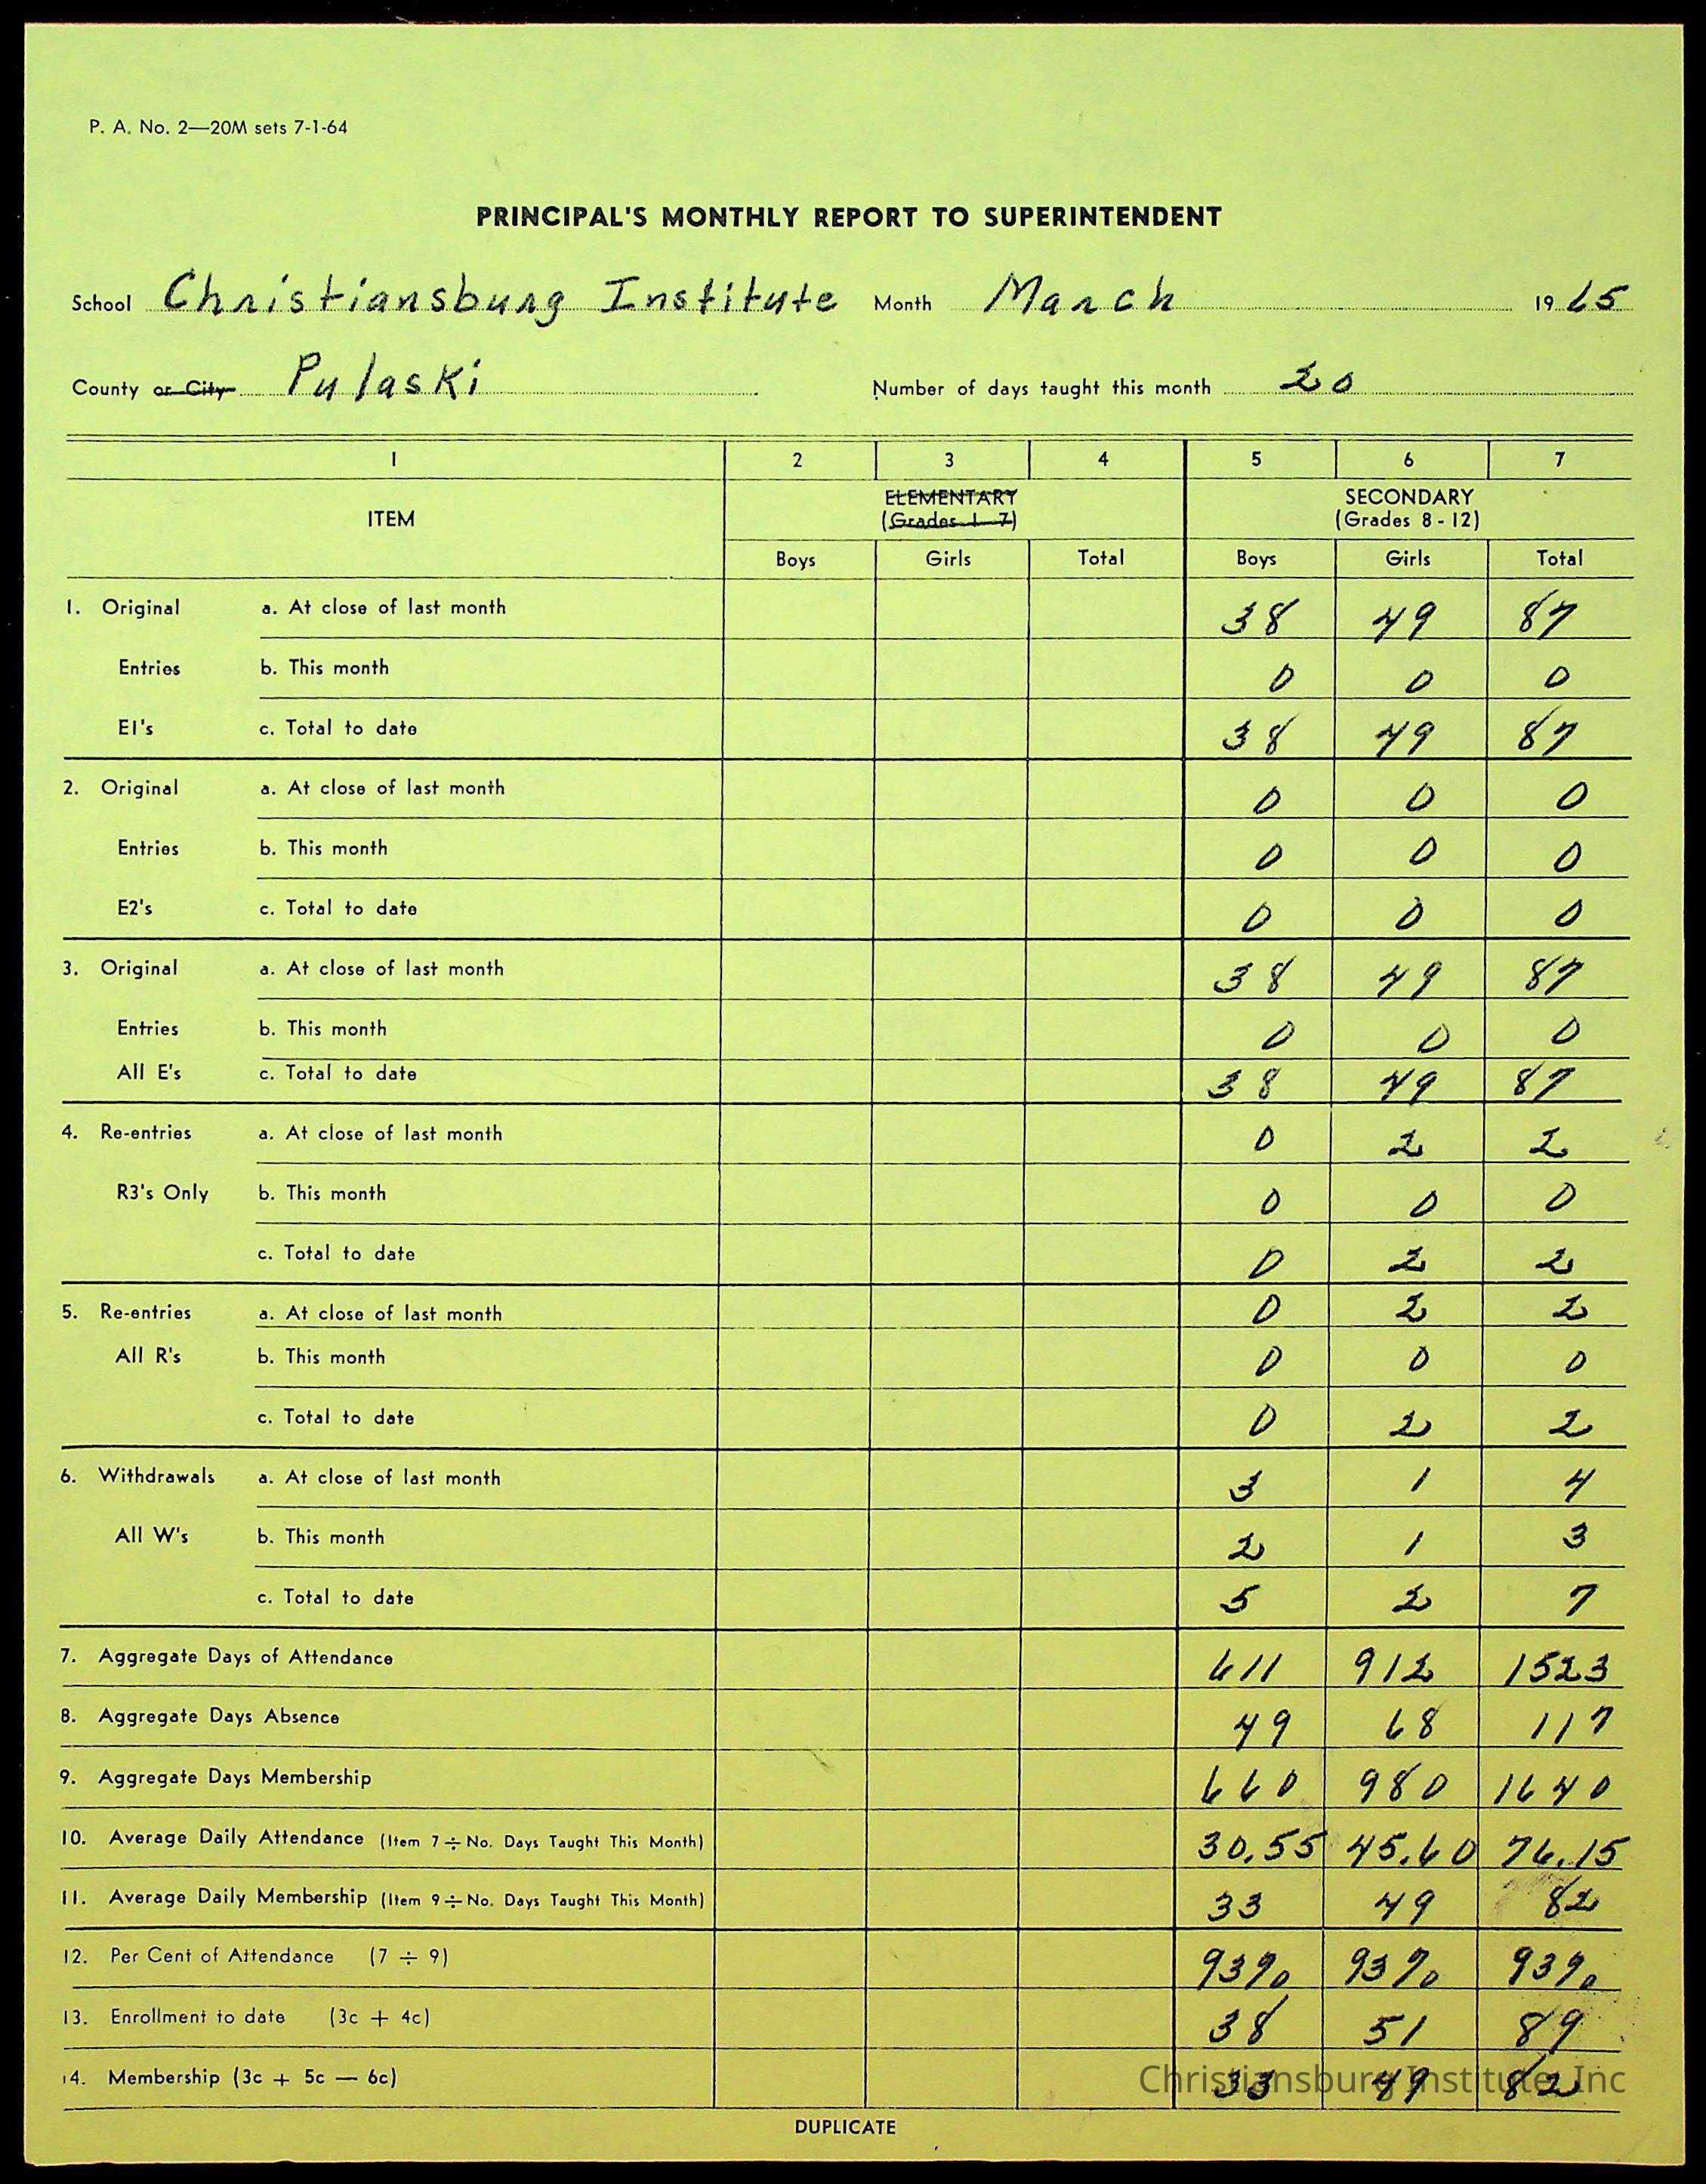 P. A. No. 2—20M sets 7-1-64
PRINCIPAL'S MONTHLY REPORT TO SUPERINTENDENT
School Christiansburg Institute Month March 1965
County or City Pulaski Number of days taught this month 20
1 2 3 4 5 6 7
ITEM ELEMENTARY (Grades 1-7) SECONDARY (Grades 8 - 12)
Boys Girls Total Boys Girls Total
1. Original a. At close of last month 38 49 87
Entries b. This month 0 0 0
E1's c. Total to date 38 49 87
2. Original a. At close of last month 0 0 0
Entries b. This month 0 0 0
E2's c. Total to date 0 0 0
3. Original a. At close of last month 38 49 87
Entries b. This month 0 0 0
All E's c. Total to date 38 49 87
4. Re-entries a. At close of last month 0 2 2
R3's Only b. This month 0 0 0
c. Total to date 0 2 2
5. Re-entries a. At close of last month 0 2 2
All R's b. This month 0 0 0
c. Total to date 0 2 2
6. Withdrawals a. At close of last month 3 1 4
All W's b. This month 2 1 3
c. Total to date 5 2 7
7. Aggregate Days of Attendance 611 912 1523
8. Aggregate Days Absence 49 68 117
9. Aggregate Days Membership 660 980 1640
10. Average Daily Attendance (Item 7 ÷ No. Days Taught This Month) 30.55 45.60 76.15
11. Average Daily Membership (Item 9 ÷ No. Days Taught This Month) 33 49 82
12. Per Cent of Attendance (7 ÷ 9) 93% 93% 93%
13. Enrollment to date (3c + 4c) 38 51 89
14. Membership (3c + 5c — 6c) 33 49 82
Christiansburg Institute, Inc
DUPLICATE